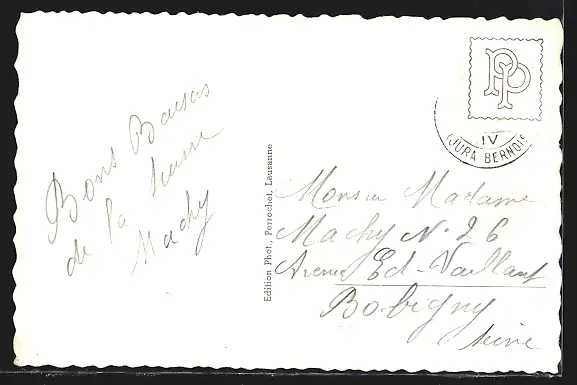 Bons Baisers
de la
Machy
Edition Phot., Perrochet, Lausanne
PP
IV
(JURA BERNOIS
Monsieur Madame
Machy N° 26
Avenue Ed-Vaillant
Bobigny
Seine